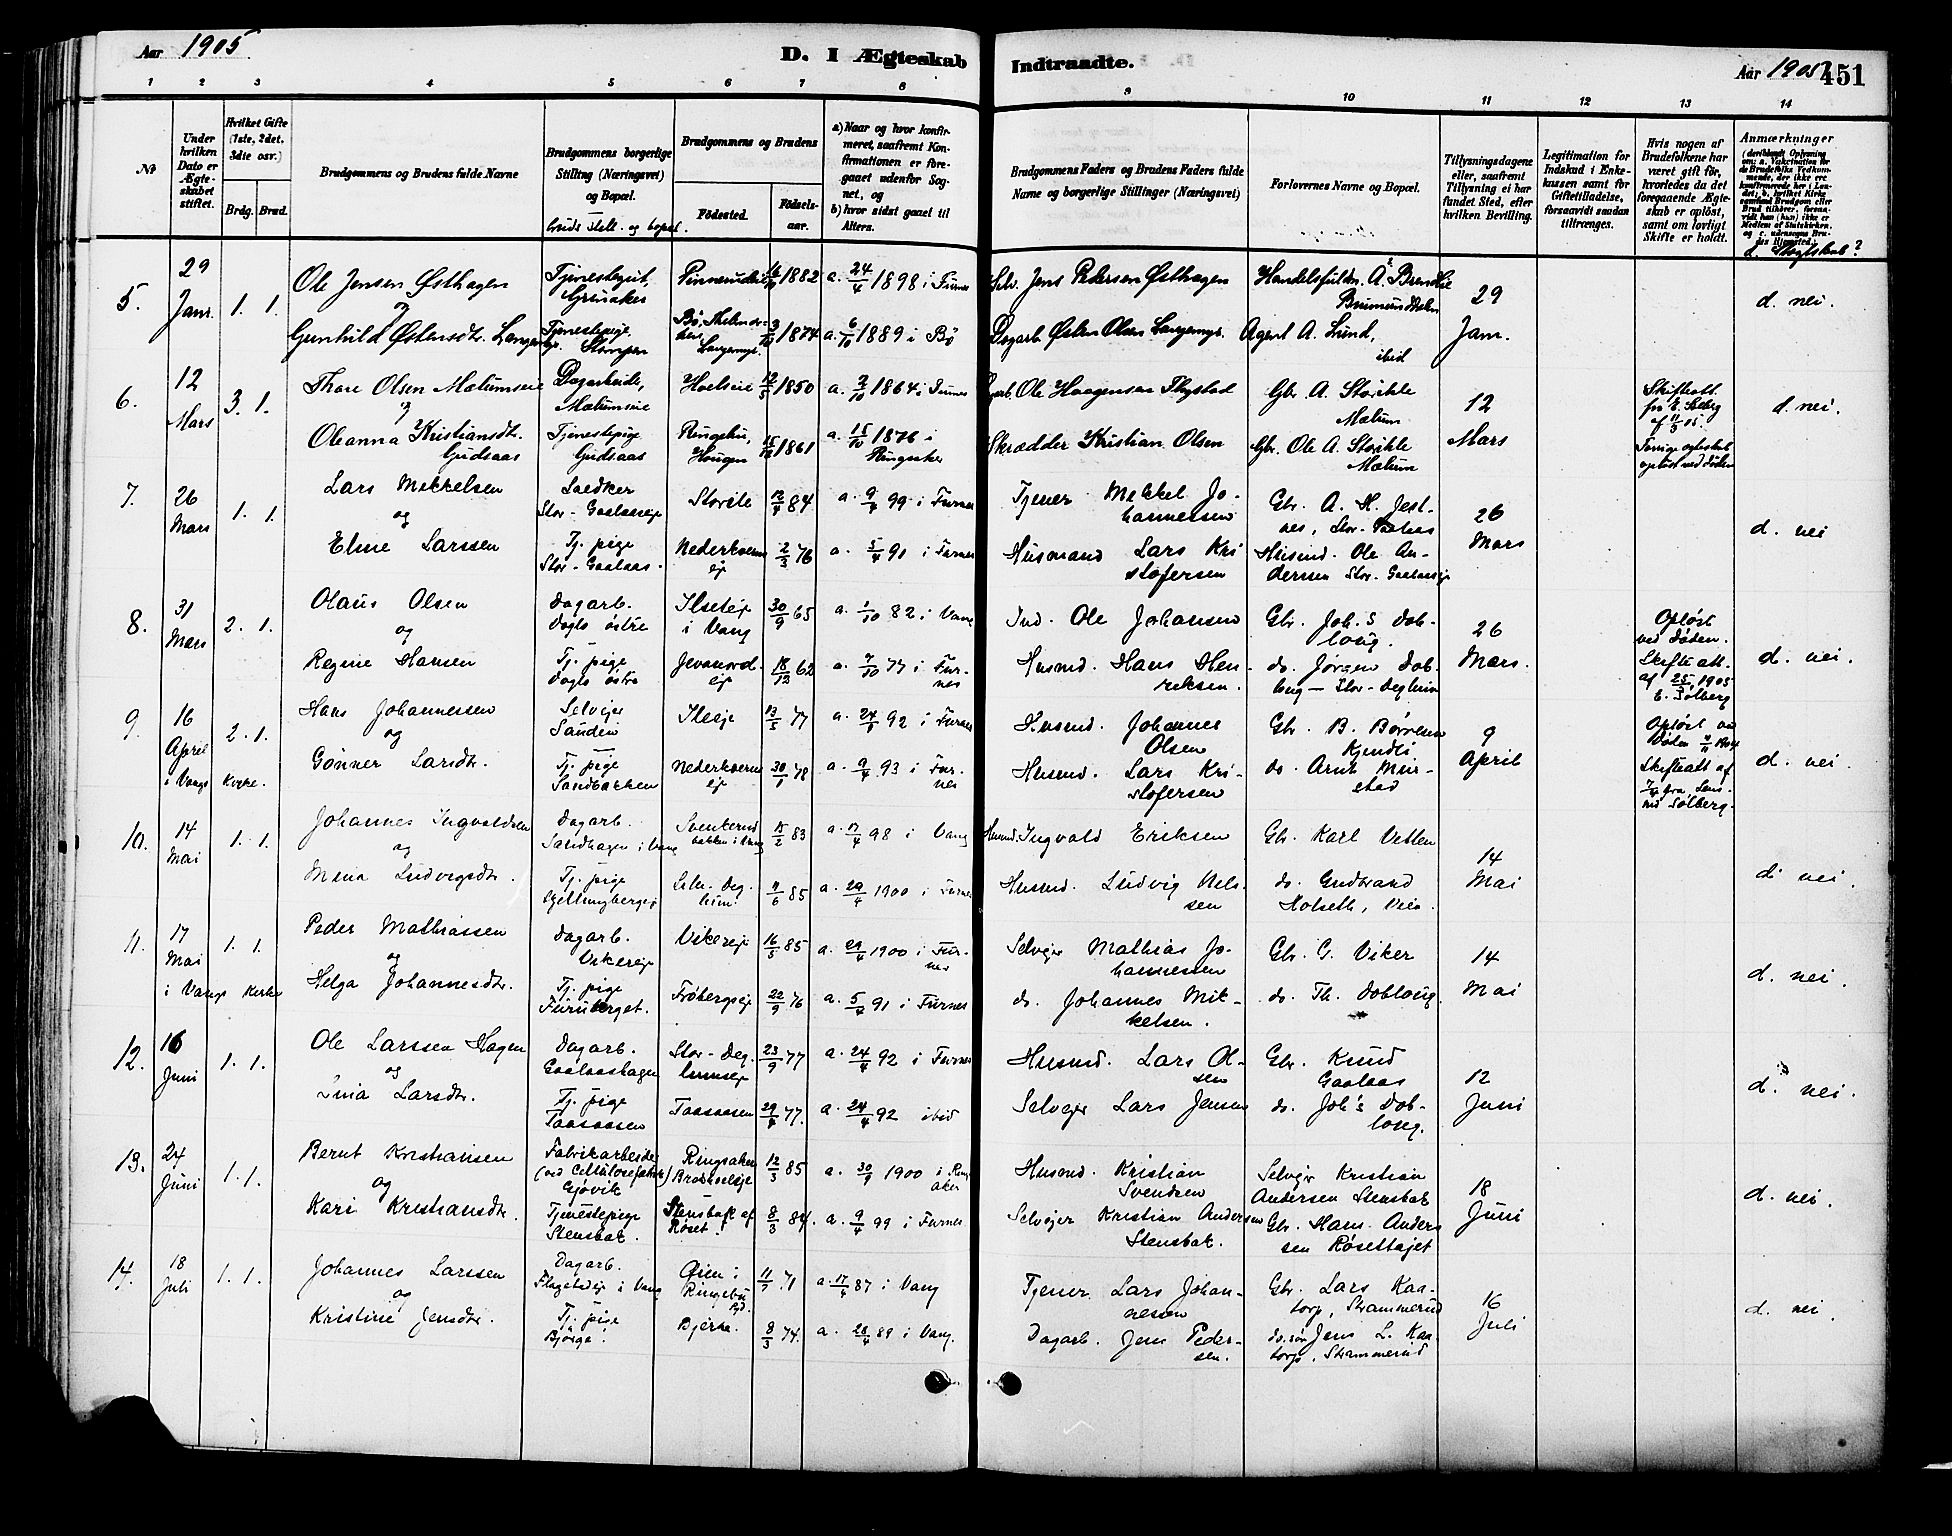 Aar 1905.
D. I Ægteskab Indtraadte.
Aar 1905
451
1 2 3 4 5 6 7 8 9 10 11 12 13 14
№
Under hvilken Dato er Ægteskabet stiftet.
Hvilket Gifte (1ste, 2det, 3die osv.)
Brdg. Brud.
Brudgommens og Brudens fulde Navne
Brudgommens borgerlige Stilling (Næringsvei) og Bopæl.
bruds still. og bopæl.
Brudgommens og Brudens
Födested. Födselsaar.
a) Naar og hvor konfirmeret, saafremt Konfirmationen er foregaaet udenfor Sognet, og
b) hvor sidst gaaet til Alters.
Brudgommens Faders og Brudens Faders fulde Navne og borgerlige Stillinger (Næringsvei)
Forlovernes Navne og Bopæl.
Tillysningsdagene eller, saafremt Tillysning ei har fundet Sted, efter hvilken Bevilling.
Legitimation for Indskud i Enkekassen samt for Giftetilladelse, forsaavidt saadan tiltrænges.
Hvis nogen af Brudefolkene har været gift för, hvorledes da det foregaaende Ægteskab er oplöst, samt om lovligt Skifte er holdt.
Anmærkninger
d. Slægtskab?
5. 29 Janr. 1. 1.
Ole Jensen Østhagen
og
Gunhild Østensdtr. Langemyr
Tjenestegut, Gruaker
Tjenestepige
16/ 1882 a. 24/4 1898 i Furnes
3/10 1874 a. 6/10 1889 i Bø
Selv. Jens Pedersen Østhagen
Dagarb. Østen Olsen Langemyr
Handelsfuldm. A. Brendlie Brumunddalen
Agent A. Lund, ibid
29 Janr.
d. nei.
6. 12 Mars 3. 1.
Thore Olsen Mælumseie
og
Oleanna Kristiansdtr. Gudsaas
Dagarbeide, Mælumseie
Tjenestepige Gudsaas
Hoelseie 12/5 1850 a. 2/10 1864 i Furnes
Ringebu, Hougen 15/12 1861 a. 15/10 1876 i Ringsaker
Dgarb. Ole Haagensen Thystad
Skrædder Kristian Olsen
Gbr. A. Storihle Mælum
Gbr. Ole A. Storihle Mælum
12 Mars
Skifteatt. fra E. Solberg af 11/3 05.
Forrige ægteskab opløst ved døden
d. nei.
7. 26 Mars 1. 1.
Lars Mikkelsen
og
Eline Larssen
Snedker Stor-Gaalaaseje
Tj. pige Stor-Gaalaas.
Storile 12/4 84 a. 9/4 99 i Furnes
Nederkvern ej 2/3 76 a. 5/4 91 i Furnes
Tjener Mekkel Johannessen
Husmand Lars Kristofersen
Gbr. A. H. Jestnes, Stor-Gaalaas
Husmd. Ole Anderssen Stor-Gaalaasej
26 Mars
d. nei
8. 31 Mars 2. 1.
Olaus Olsen
og
Regine Hansen
Dagarb. Doglo østre
Tj. pige Doglo østre
Ilseteje i Vang 30/9 65 a. 1/10 82 i Vang
Jevanordej 18/12 62 a. 7/10 77 i Furnes
Ind. Ole Johansen
Husmd. Hans Henriksen.
Gbr. Joh.s Dobloug.
do. Jørgen Dobloug — Stor-Deglum
26 Mars.
Opløst ved Døden. Skifteatt. af 25/3 1905 E. Solberg
d. nei.
9. 16 April i Vangs Kirke. 2. 1.
Hans Johannessen
og
Gønner Larsdtr.
Selvejer Sanden
Tj. pige Sandbakken
Ileeje 13/5 77 a. 24/4 92 i Furnes
Nederkvern ej 30/1 78 a. 9/4 93 i Furnes
Husmd. Johannes Olsen
Husmd. Lars Kristofersen
Gbr. B. Børresen Kjendli
do. Arnt Mørstad
9 April
Opløst ved Døden 1904 Skifteatt af 7/4 fra Lensmd Sølberg.
d. nei.
10. 14 Mai 1. 1.
Johannes Ingvaldsen
og
Mina Ludvigsdtr.
Dagarb. Sandhagen i Vang
Tj. pige
Svenkerud bakken i Vang 15/2 83 a. 17/4 98 i Vang
Lille-Deglum 11/6 85 a. 29/4 1900 i Furnes
Husmd. Ingvald Eriksen
Husmd. Ludvig Nelssen
Gbr. Karl Vetlen
do. Gudbrand Holseth, Veia.
14 Mai
d. nei.
11. 17 Mai i Vangs Kirke 1. 1.
Peder Mathiassen
og
Helga Johannesdtr.
Dagarb. Vikereje
Tj. pige Furuberget.
Vikereje 16/5 85 a. 29/4 1900 i Furnes
Frøbergseje 22/9 76 a. 5/4 91 i Furnes
Selvejer Mathias Johannessen
do. Johannes Mikkelsen.
Gbr. G. Viker
do. Th. Dobloug.
14 Mai
d. nei.
12. 16 Juni 1. 1.
Ole Larssen Hagen
og
Lina Larsdtr.
Dagarb. Gaalaashagen
Tj. pige Taasaasen
Stor-Deglumsej 23/9 77 a. 24/4 92 i Furnes
Taasaasen 29/4 77. a. 24/4 92 ibid
Husmd. Lars Olsen
Selvejer Lars Jensen
Gbr. Knud Gaalaas
do. Joh's Dobloug.
12 Juni
d. nei.
13. 24 Juni 1. 1.
Bernt Kristiansen
og
Kari Kristiansdtr.
Fabrikarbeider (ved Cellulosefabrik) Gjøvik
Tjenestepige Stensbak.
Ringsaker 12/3 85 a. 30/9 1900 i Ringsaker
Stensbak af Røset. 8/3 84. a. 9/4 99 i Furnes
Husmd. Kristian Svendsen
Selvejer Kristian Andersen Stensbak.
Selvejer Kristian Andersen Stensbak
Gbr. Hans Anderssen Røsettajet
18 Juni
d. nei.
14. 18 Juli 1. 1.
Johannes Larssen
og
Kristine Jensdtr.
Dagarb. Flagstadej i Vang
Tj. pige Bjørge.
Øien i Ringebu 11/7 71 a. 17/4 87 i Vang
Bjerke. 8/3 74. a. 28/4 89 i Vang.
Tjener Lars Johannessen
Dagarb. Jens Pedersen.
Gbr. Lars Kaatorp, Strammerud
do. søn Jens L. Kaatorp. Strammerud
16 Juli
d. nei.